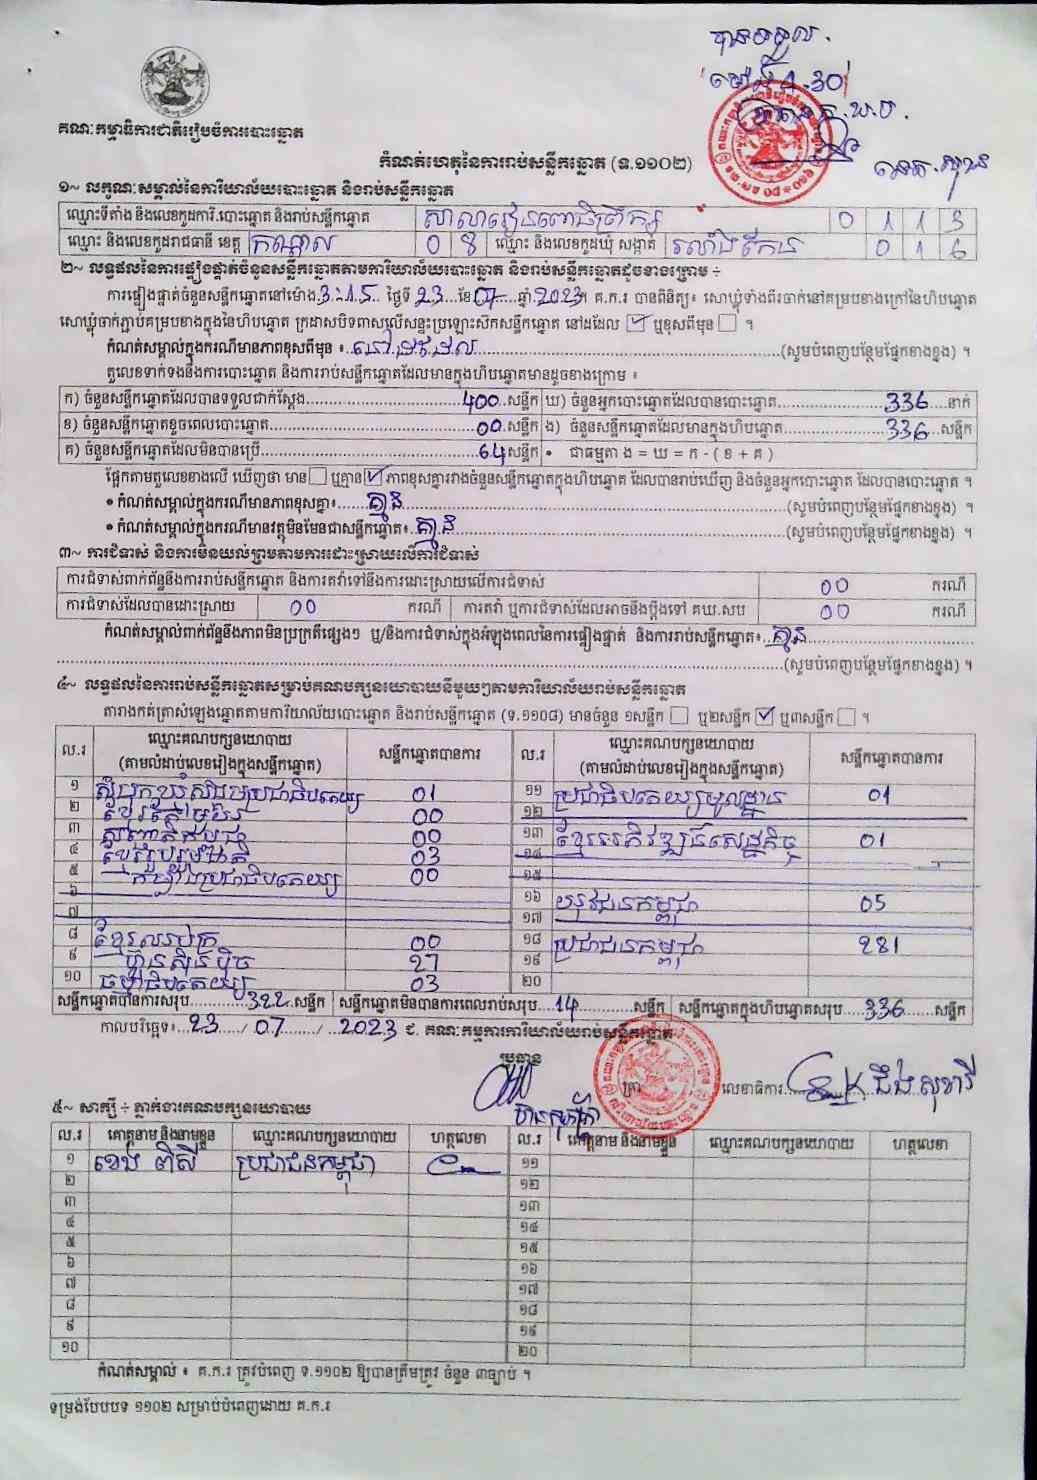 បានទទួល
ម៉ោង
គណៈកម្មាធិការជាតិរៀបចំការបោះឆ្នោត
កំណត់ហេតុនៃការរាប់សន្លឹកឆ្នោត (ទ.១១០២)
១~ លក្ខណៈសម្គាល់នៃការិយាល័យបោះឆ្នោត និងរាប់សន្លឹកឆ្នោត
ឈ្មោះទីតាំង និងលេខកូដការិ.បោះឆ្នោត និងរាប់សន្លឹកឆ្នោត សាលារៀនពោធិព្រឹក្ស 0 1 1 3
ឈ្មោះ និងលេខកូដរាជធានី ខេត្ត កណ្ដាល 0 8 ឈ្មោះ និងលេខកូដឃុំ សង្កាត់ រលាំងកែន 0 1 6
២~ លទ្ធផលនៃការផ្ទៀងផ្ទាត់ចំនួនសន្លឹកឆ្នោតតាមការិយាល័យបោះឆ្នោត និងរាប់សន្លឹកឆ្នោតដូចខាងក្រោម ÷
ការផ្ទៀងផ្ទាត់ចំនួនសន្លឹកឆ្នោតនៅម៉ោង 3:15 ថ្ងៃទី 23 ខែ 07 ឆ្នាំ 2023។ គ.ក.រ បានពិនិត្យ៖ សោឃ្លុំទាំងពីរចាក់នៅគម្របខាងក្រៅនៃហិបឆ្នោត
សោឃ្លុំចាក់ភ្ជាប់គម្របខាងក្នុងនៃហិបឆ្នោត ក្រដាសបិទពាសលើសន្ទះប្រឡោះស៊កសន្លឹកឆ្នោត នៅដដែល ☑ ឬខុសពីមុន ☐ ។
កំណត់សម្គាល់ក្នុងករណីមានភាពខុសពីមុន ៖ នៅដដែល (សូមបំពេញបន្ថែមផ្នែកខាងខ្នង) ។
តួលេខទាក់ទងនឹងការបោះឆ្នោត និងការរាប់សន្លឹកឆ្នោតដែលមានក្នុងហិបឆ្នោតមានដូចខាងក្រោម ៖
ក) ចំនួនសន្លឹកឆ្នោតដែលបានទទួលជាក់ស្តែង 400 សន្លឹក ឃ) ចំនួនអ្នកបោះឆ្នោតដែលបានបោះឆ្នោត 336 នាក់
ខ) ចំនួនសន្លឹកឆ្នោតខូចពេលបោះឆ្នោត 00 សន្លឹក ង) ចំនួនសន្លឹកឆ្នោតដែលមានក្នុងហិបឆ្នោត 336 សន្លឹក
គ) ចំនួនសន្លឹកឆ្នោតដែលមិនបានប្រើ 64 សន្លឹក • ជាធម្មតា ង = ឃ = ក - ( ខ + គ )
ផ្អែកតាមតួលេខខាងលើ ឃើញថា មាន ☐ ឬគ្មាន ☑ ភាពខុសគ្នារវាងចំនួនសន្លឹកឆ្នោតក្នុងហិបឆ្នោត ដែលបានរាប់ឃើញ និងចំនួនអ្នកបោះឆ្នោត ដែលបានបោះឆ្នោត ។
• កំណត់សម្គាល់ក្នុងករណីមានភាពខុសគ្នា៖ គ្មាន (សូមបំពេញបន្ថែមផ្នែកខាងខ្នង) ។
• កំណត់សម្គាល់ក្នុងករណីមានវត្ថុមិនមែនជាសន្លឹកឆ្នោត៖ គ្មាន (សូមបំពេញបន្ថែមផ្នែកខាងខ្នង) ។
៣~ ការជំទាស់ និងការមិនយល់ព្រមតាមការដោះស្រាយលើការជំទាស់
ការជំទាស់ពាក់ព័ន្ធនឹងការរាប់សន្លឹកឆ្នោត និងការតវ៉ាទៅនឹងការដោះស្រាយលើការជំទាស់ 00 ករណី
ការជំទាស់ដែលបានដោះស្រាយ 00 ករណី ការតវ៉ា ឬការជំទាស់ដែលអាចនឹងប្ដឹងទៅ គឃ.សប 00 ករណី
កំណត់សម្គាល់ពាក់ព័ន្ធនឹងភាពមិនប្រក្រតីផ្សេងៗ ឬ/និងការជំទាស់ក្នុងអំឡុងពេលនៃការផ្ទៀងផ្ទាត់ និងការរាប់សន្លឹកឆ្នោត៖ គ្មាន
(សូមបំពេញបន្ថែមផ្នែកខាងខ្នង) ។
៤~ លទ្ធផលនៃការរាប់សន្លឹកឆ្នោតសម្រាប់គណបក្សនយោបាយនីមួយៗតាមការិយាល័យរាប់សន្លឹកឆ្នោត
តារាងកត់ត្រាសំឡេងឆ្នោតតាមការិយាល័យបោះឆ្នោត និងរាប់សន្លឹកឆ្នោត (ទ.១១០៨) មានចំនួន ១សន្លឹក ☐ ឬ២សន្លឹក ☑ ឬ៣សន្លឹក ☐ ។
ល.រ ឈ្មោះគណបក្សនយោបាយ សន្លឹកឆ្នោតបានការ ល.រ ឈ្មោះគណបក្សនយោបាយ សន្លឹកឆ្នោតបានការ
(តាមលំដាប់លេខរៀងក្នុងសន្លឹកឆ្នោត) (តាមលំដាប់លេខរៀងក្នុងសន្លឹកឆ្នោត)
១ សំបុកឃ្មុំសង្គមប្រជាធិបតេយ្យ 01 ១១ ប្រជាធិបតេយ្យមូលដ្ឋាន 01
២ ខ្មែរតែមួយ 00 ១២
៣ 00 ១៣ ខ្មែរអភិវឌ្ឍន៍សេដ្ឋកិច្ច 01
៤ ខ្មែររួបរួមជាតិ 03 ១៤
៥ កម្លាំងប្រជាធិបតេយ្យ 00 ១៥
៦ ១៦ យុវជនកម្ពុជា 05
៧ ១៧
៨ ខ្មែរឈប់ក្រ 00 ១៨ ប្រជាជនកម្ពុជា 281
៩ ហ៊្វុនស៊ិនប៉ិច 27 ១៩
១០ ធម្មាធិបតេយ្យ 03 ២០
សន្លឹកឆ្នោតបានការសរុប 322 សន្លឹក សន្លឹកឆ្នោតមិនបានការពេលរាប់សរុប 14 សន្លឹក សន្លឹកឆ្នោតក្នុងហិបឆ្នោតសរុប 336 សន្លឹក
កាលបរិច្ឆេទ៖ 23 / 07 / 2023 ជ. គណៈកម្មការការិយាល័យរាប់សន្លឹកឆ្នោត
ប្រធាន
ត្រា លេខាធិការ
៥~ សាក្សី ÷ ភ្នាក់ងារគណបក្សនយោបាយ
ល.រ គោត្តនាម និងនាមខ្លួន ឈ្មោះគណបក្សនយោបាយ ហត្ថលេខា ល.រ គោត្តនាម និងនាមខ្លួន ឈ្មោះគណបក្សនយោបាយ ហត្ថលេខា
១ ខេង ពិសី ប្រជាជនកម្ពុជា ១១
២ ១២
៣ ១៣
៤ ១៤
៥ ១៥
៦ ១៦
៧ ១៧
៨ ១៨
៩ ១៩
១០ ២០
កំណត់សម្គាល់ ៖ គ.ក.រ ត្រូវបំពេញ ទ.១១០២ ឱ្យបានត្រឹមត្រូវ ចំនួន ៣ច្បាប់ ។
ទម្រង់បែបបទ ១១០២ សម្រាប់បំពេញដោយ គ.ក.រ